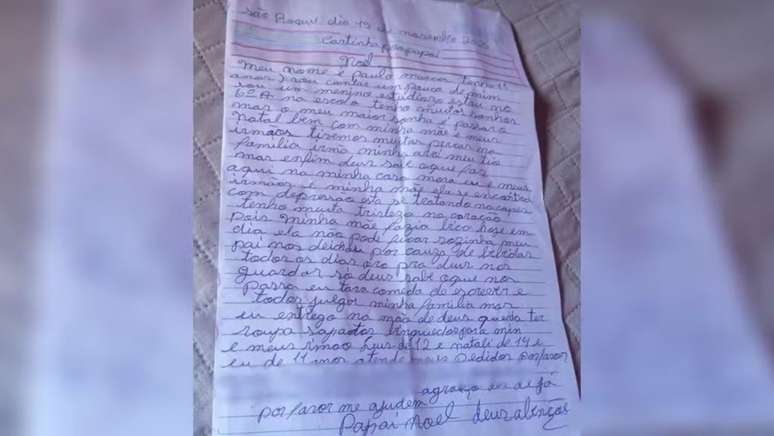 São Roque dia 19 de novembro 20
Cartinha pra papai
Noel
Meu nome é paulo marcos tenho 11
anos vou contar um pouco de mim
sou um menino estudioso estou no
6º A na escola tenho muitos sonhos
mas o meu maior sonho é passar o
Natal bem com minha mãe e meus
irmãos tivemos muitas percas na
família irmã minha avó meu tio
mas enfim deus sabe oque faz
aqui na minha casa mora eu e meus
irmãos e minha mãe ela se encontra
com depressão esta se tratando no capes
tenho muita tristeza no coração
pois minha mãe fazia bico hoje em
dia ela não pode ficar sozinha meu
pai nos deichou por cauza de bebidas
todos os dias oro pra deus nos
guardar só deus sabe oque nos
passa eu tava comeda de escrever e
todos julgar minha família mas
eu entrego na mão de deus queria ter
roupa sapatos brinquedos para mim
e meus irmão de 12 e natali de 14 e
eu de 11 anos atende meus pedidos por favor
agradeço em já
por favor me ajudem
Papai Noel deus abençoe